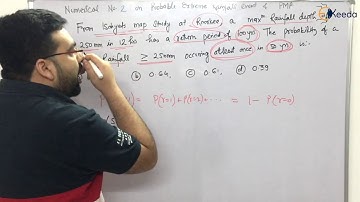 Numerical No: 2 on Probable Extreme Rainfall Event & PMP
Keeda
From Isohyets map study of Roorkee, a maxm Rainfall depth
250mm in 12 hrs has a return period of 50 yrs. The probability of a
Rainfall ≥ 250mm occuring atleast once in 50 yrs is:-
(b) 0.64, (c) 0.61, (d) 0.39
P( 1) = P(r=1) + P(r=2) + ...... = 1 - P(r=0)